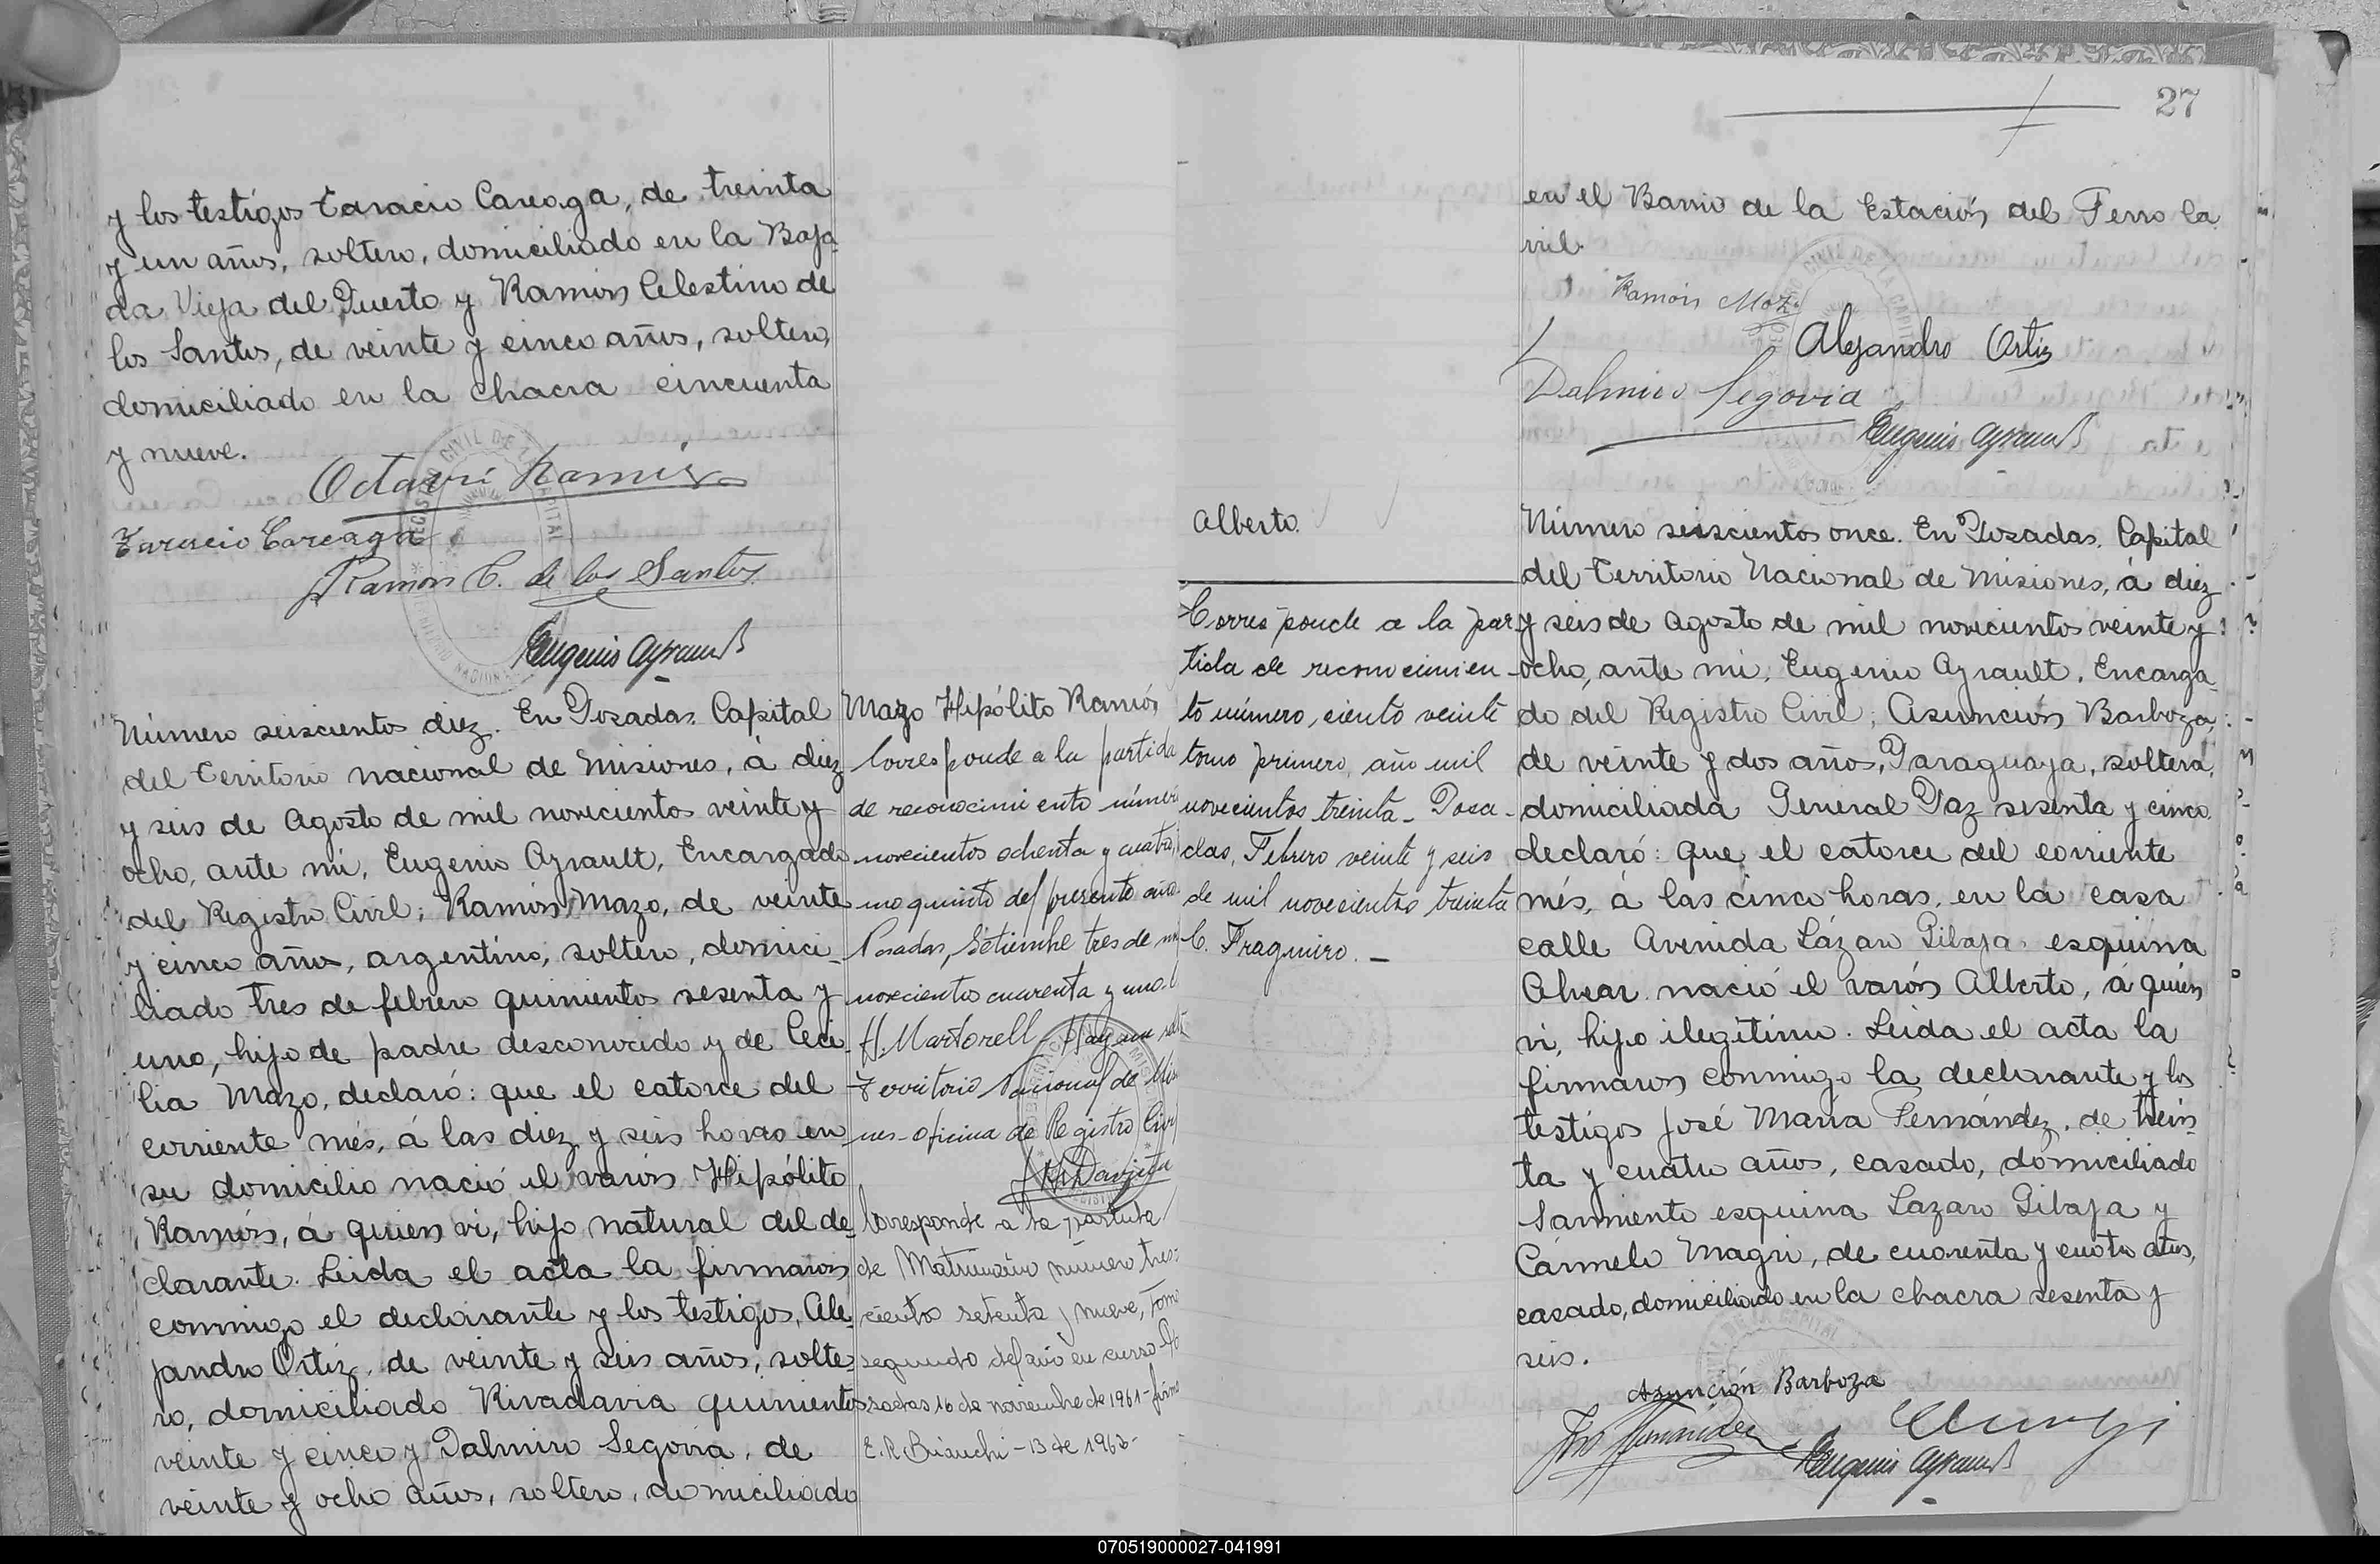 y los testigos Taracio Careaga, de treinta
y un años, soltero, domiciliado en la Baja
da Vieja del Puerto y Ramón Celestino de
los Santos, de veinte y cinco años, soltero,
domiciliado en la chacra cincuenta
y nueve.
Taracio Careaga
Ramón C. de los Santos
Eugenio Ayrault
Número seiscientos diez. En Posadas, Capital
del Territorio nacional de Misiones, á diez
y seis de Agosto de mil novecientos veinte y
ocho, ante mi, Eugenio Ayrault, Encargado
del Registro Civil; Ramón Mazo, de veinte
y cinco años, argentino, soltero, domici-
liado tres de febrero quinientos sesenta y
uno, hijo de padre desconocido y de Ceci-
lia Mazo, declaró: que el catorce del
corriente més, á las diez y seis horas en
su domicilio nació el varón Hipólito
Ramón, á quien vi, hijo natural del de-
clarante. Leida el acta la firmaron
conmigo el declarante y los testigos, Ale-
jandro Ortiz, de veinte y seis años, solte-
ro, domiciliado Rivadavia quinientos
veinte y cinco y Dalmiro Segovia, de
veinte y ocho años, soltero, domiciliado
Mazo Hipólito Ramón
Corresponde a la partida
de reconocimiento número
novecientos ochenta y cuatro,
mo quinto del presente año.
Posadas, Setiembre tres de
novecientos cuarenta y uno.
H. Martorell
Territorio Nacional de
nes - oficina de Registro
Coresponde a la partida
de Matrimonio número tres-
cientos setenta y nueve, Tomo
segundo del año en curso
sadas 16 de noviembre de 1961 -
E. R. Bianchi - 13 de 1963 -
27
en el Barrio de la Estación del Ferro Ca
rril.
Ramón Mazo
Alejandro Ortiz
Dalmiro Segovia
Eugenio Ayrault
Alberto.
Corresponde a la par
tida de reconocimien-
to número, ciento veinte
tomo primero, año mil
novecientos treinta - Posa-
das, Febrero veinte y seis
de mil novecientos treinta
C. Fraguiro. -
Número seiscientos once. En Posadas, Capital
del Territorio Nacional de Misiones, á diez
y seis de Agosto de mil novecientos veinte y
ocho, ante mi, Eugenio Ayrault, Encarga-
do del Registro Civil; Asunción Barboza,
de veinte y dos años, Paraguaya, soltera,
domiciliada General Paz sesenta y cinco,
declaró: que el catorce del corriente
més, á las cinco horas, en la casa
calle Avenida Lázaro Gibaja esquina
Alvear nació el varón Alberto, á quién
vi, hijo ilegitimo. Leida el acta la
firmaron conmigo la declarante y los
testigos José María Fernández, de trein-
ta y cuatro años, casado, domiciliado
Sarmiento esquina Lazaro Gibaja y
Cármelo Magri, de cuarenta y cuatro años,
casado, domiciliado en la chacra sesenta y
seis.
Asunción Barboza
Eugenio Ayrault
070519000027-041991